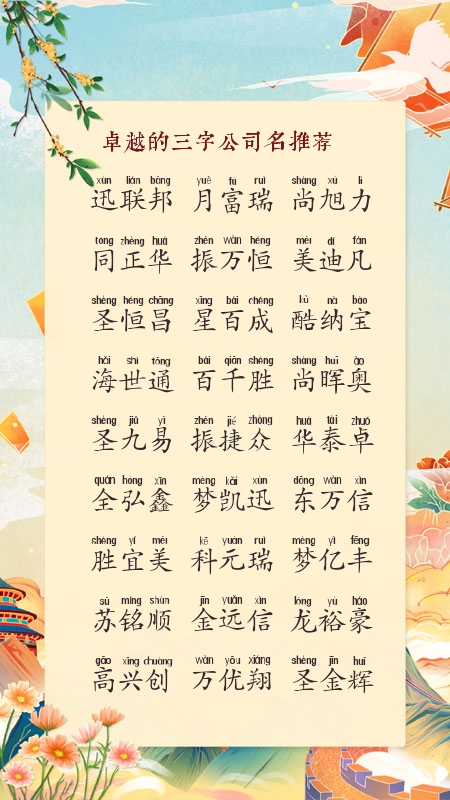 卓越的三字公司名推荐
xùn lián bāng yuè fù ruì shàng xù lì
迅联邦 月富瑞 尚旭力
tóng zhèng huá zhèn wàn héng měi dí fán
同正华 振万恒 美迪凡
shèng héng chāng xīng bǎi chéng kù nà bǎo
圣恒昌 星百成 酷纳宝
hǎi shì tōng bǎi qiān shèng shàng huī ào
海世通 百千胜 尚晖奥
shèng jiǔ yì zhèn jié zhòng huá tài zhuó
圣九易 振捷众 华泰卓
quán hóng xīn mèng kǎi xùn dōng wàn xìn
全弘鑫 梦凯迅 东万信
shèng yí měi kē yuán ruì mèng yì fēng
胜宜美 科元瑞 梦亿丰
sū míng shùn jīn yuǎn xìn lóng yù háo
苏铭顺 金远信 龙裕豪
gāo xīng chuàng wàn yōu xiáng shèng jīn huī
高兴创 万优翔 圣金辉